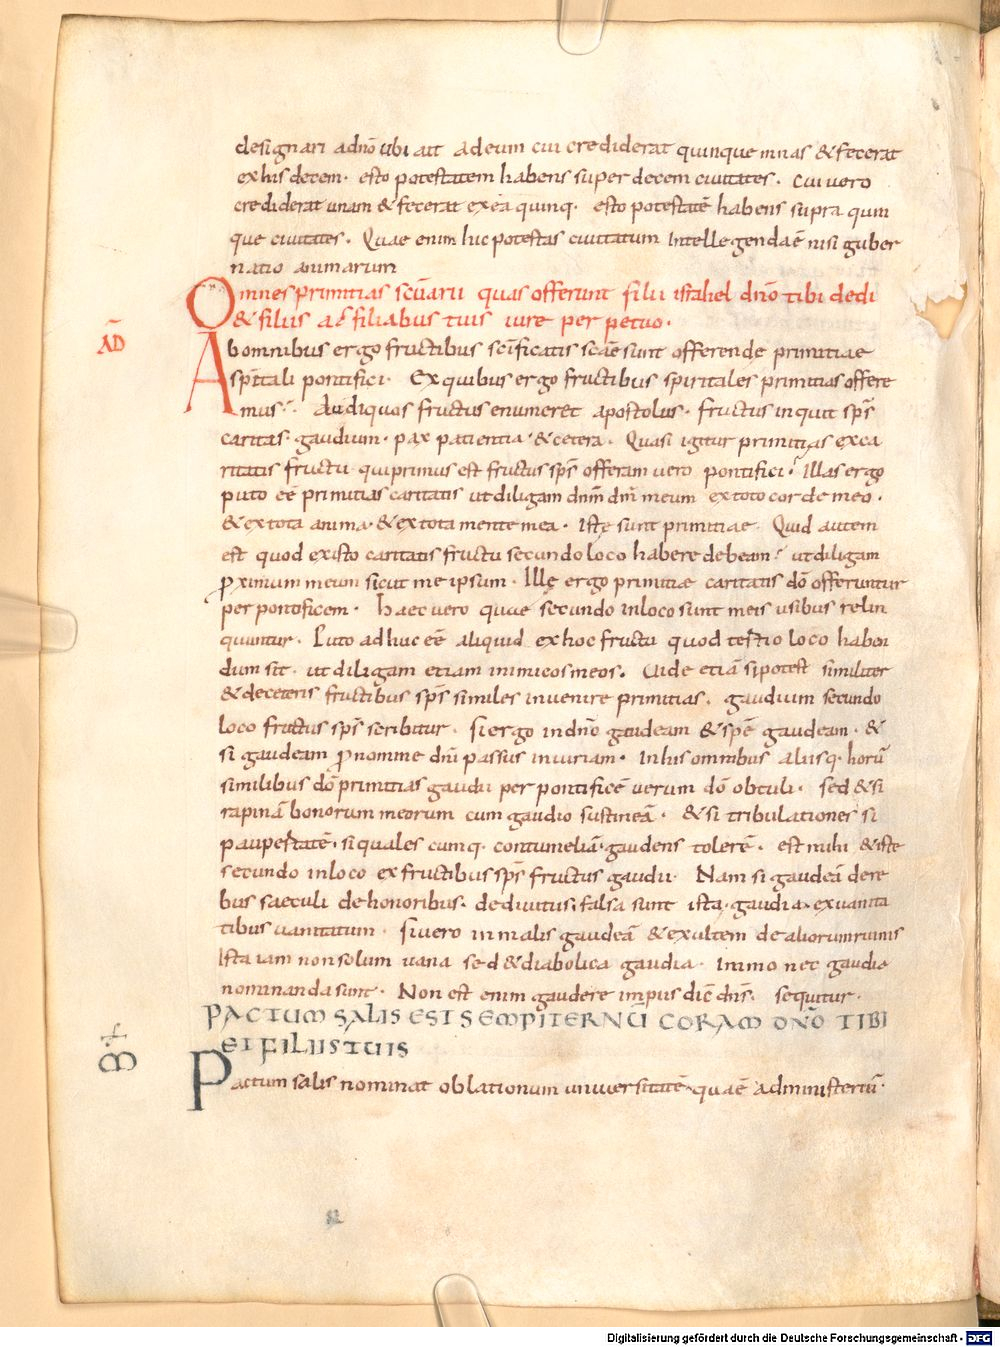 designari adnō ubi ait adeum cui crediderat quinque mnas & fecerat
exhis decem· esto potestatem habens super decem ciuitates· cuiuero
crediderat unam & fecerat exea quinq· esto potestatē habens supra quin
que ciuitates· Quae enim huic potestas ciuitatum Intellegendaē nisi guber
natio animarum
Omnes primitias scūarū quas offerunt filii israhel dnō tibi dedi
& filiis ac filiabus tuis iure perpetuo·
AD
Abomnibus ergo fructibus scīficatis scāe sunt offerende primitiae
spīetali pontifici· Exquibus ergo fructibus spiritales primitias offere
mus· Audiquos fructus enumeret apostolus· fructus inquit sp̄s
caritas· gaudium· pax patientia· & cetera· Quasi igitur primitias exca
ritatis fructu· quiprimus est fructus sp̄s offeram uero pontifici· Illas ergo
puto eē primitias caritatis ut diligam dnm̄ dm̄ meum ex toto corde meo·
& ex tota anima· & ex tota mente mea· Istę sunt primitiae· Quid autem
est quod existo caritatis fructu secundo loco habere debeam· ut diligam
proximum meum sicut me ipsum· Illę ergo primitiae caritatis dō offeruntur
per pontificem· haec uero quae secundo inloco sunt meis usibus relin
quuntur· Puto ad huc eē aliquid exhoc fructu quod tertio loco haben
dum sit· ut diligam etiam inimicos meos· Uide etiā si potest similiter
& deceteris fructibus sp̄s similes inuenire primitias· gaudium secundo
loco fructus sp̄s scribitur· si ergo in dnō gaudeam & spē gaudeam· &
si gaudeam pro nomine dnī passus iniuriam· Inhis omnibus aliisq· horū
similibus dō primitias gaudii per pontificē uerum dō obtuli· sed & si
rapinā bonorum meorum cum gaudio sustineā· & si tribulationes si
paupertatē· siquales cumq· contumeliā· gaudens tolerē· est mihi & iste
secundo inloco ex fructibus sp̄s fructus gaudii· Nam si gaudeā dere
bus saeculi de honoribus· dediuitiis· falsa sunt ista· gaudia· exuanita
tibus uanitatum· siuero inmalis gaudeā & exultem dealiorumruinis
Ista iam nonsolum uana sed & diabolica gaudia· immo nec gaudia
nominanda sunt· Non est enim gaudere impiis dic̄ dns̄· sequitur·
PACTUM SALIS EST SEMPITERNŪ CORAM DNŌ TIBI
ET FILIIS TUIS
Pactum salis nominat oblationum uniuersitatē· quaē administertū·
Digitalisierung gefördert durch die Deutsche Forschungsgemeinschaft · DFG